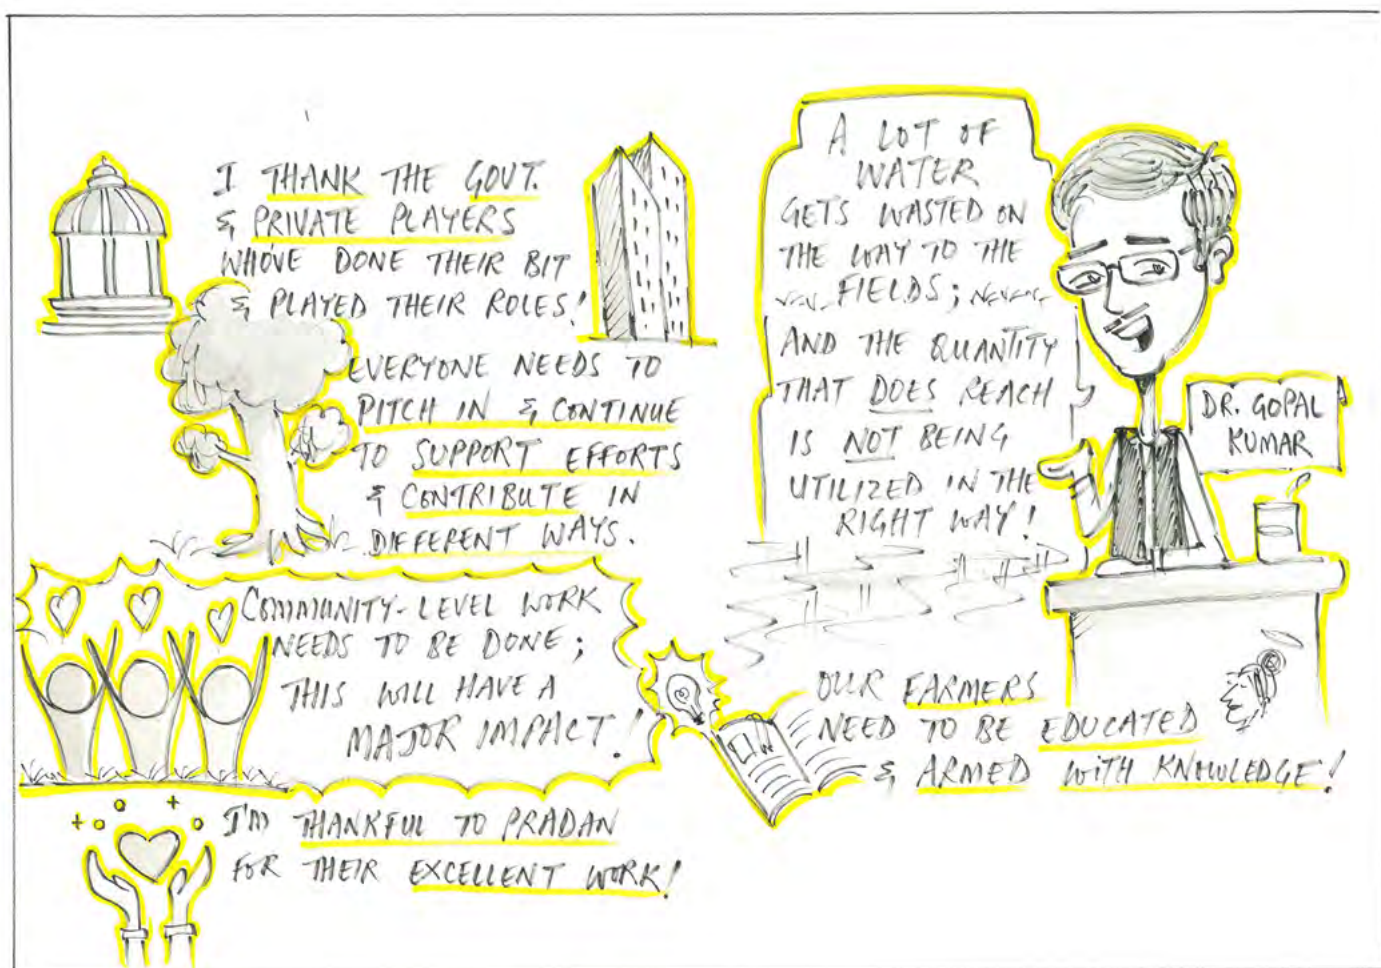 I THANK THE GOVT.
& PRIVATE PLAYERS
WHO'VE DONE THEIR BIT
& PLAYED THEIR ROLES!
EVERYONE NEEDS TO
PITCH IN & CONTINUE
TO SUPPORT EFFORTS
& CONTRIBUTE IN
DIFFERENT WAYS.
COMMUNITY-LEVEL WORK
NEEDS TO BE DONE;
THIS WILL HAVE A
MAJOR IMPACT!
I'M THANKFUL TO PRADAN
FOR THEIR EXCELLENT WORK!
A LOT OF
WATER
GETS WASTED ON
THE WAY TO THE
FIELDS;
AND THE QUANTITY
THAT DOES REACH
IS NOT BEING
UTILIZED IN THE
RIGHT WAY!
DR. GOPAL
KUMAR
OUR FARMERS
NEED TO BE EDUCATED
& ARMED WITH KNOWLEDGE!